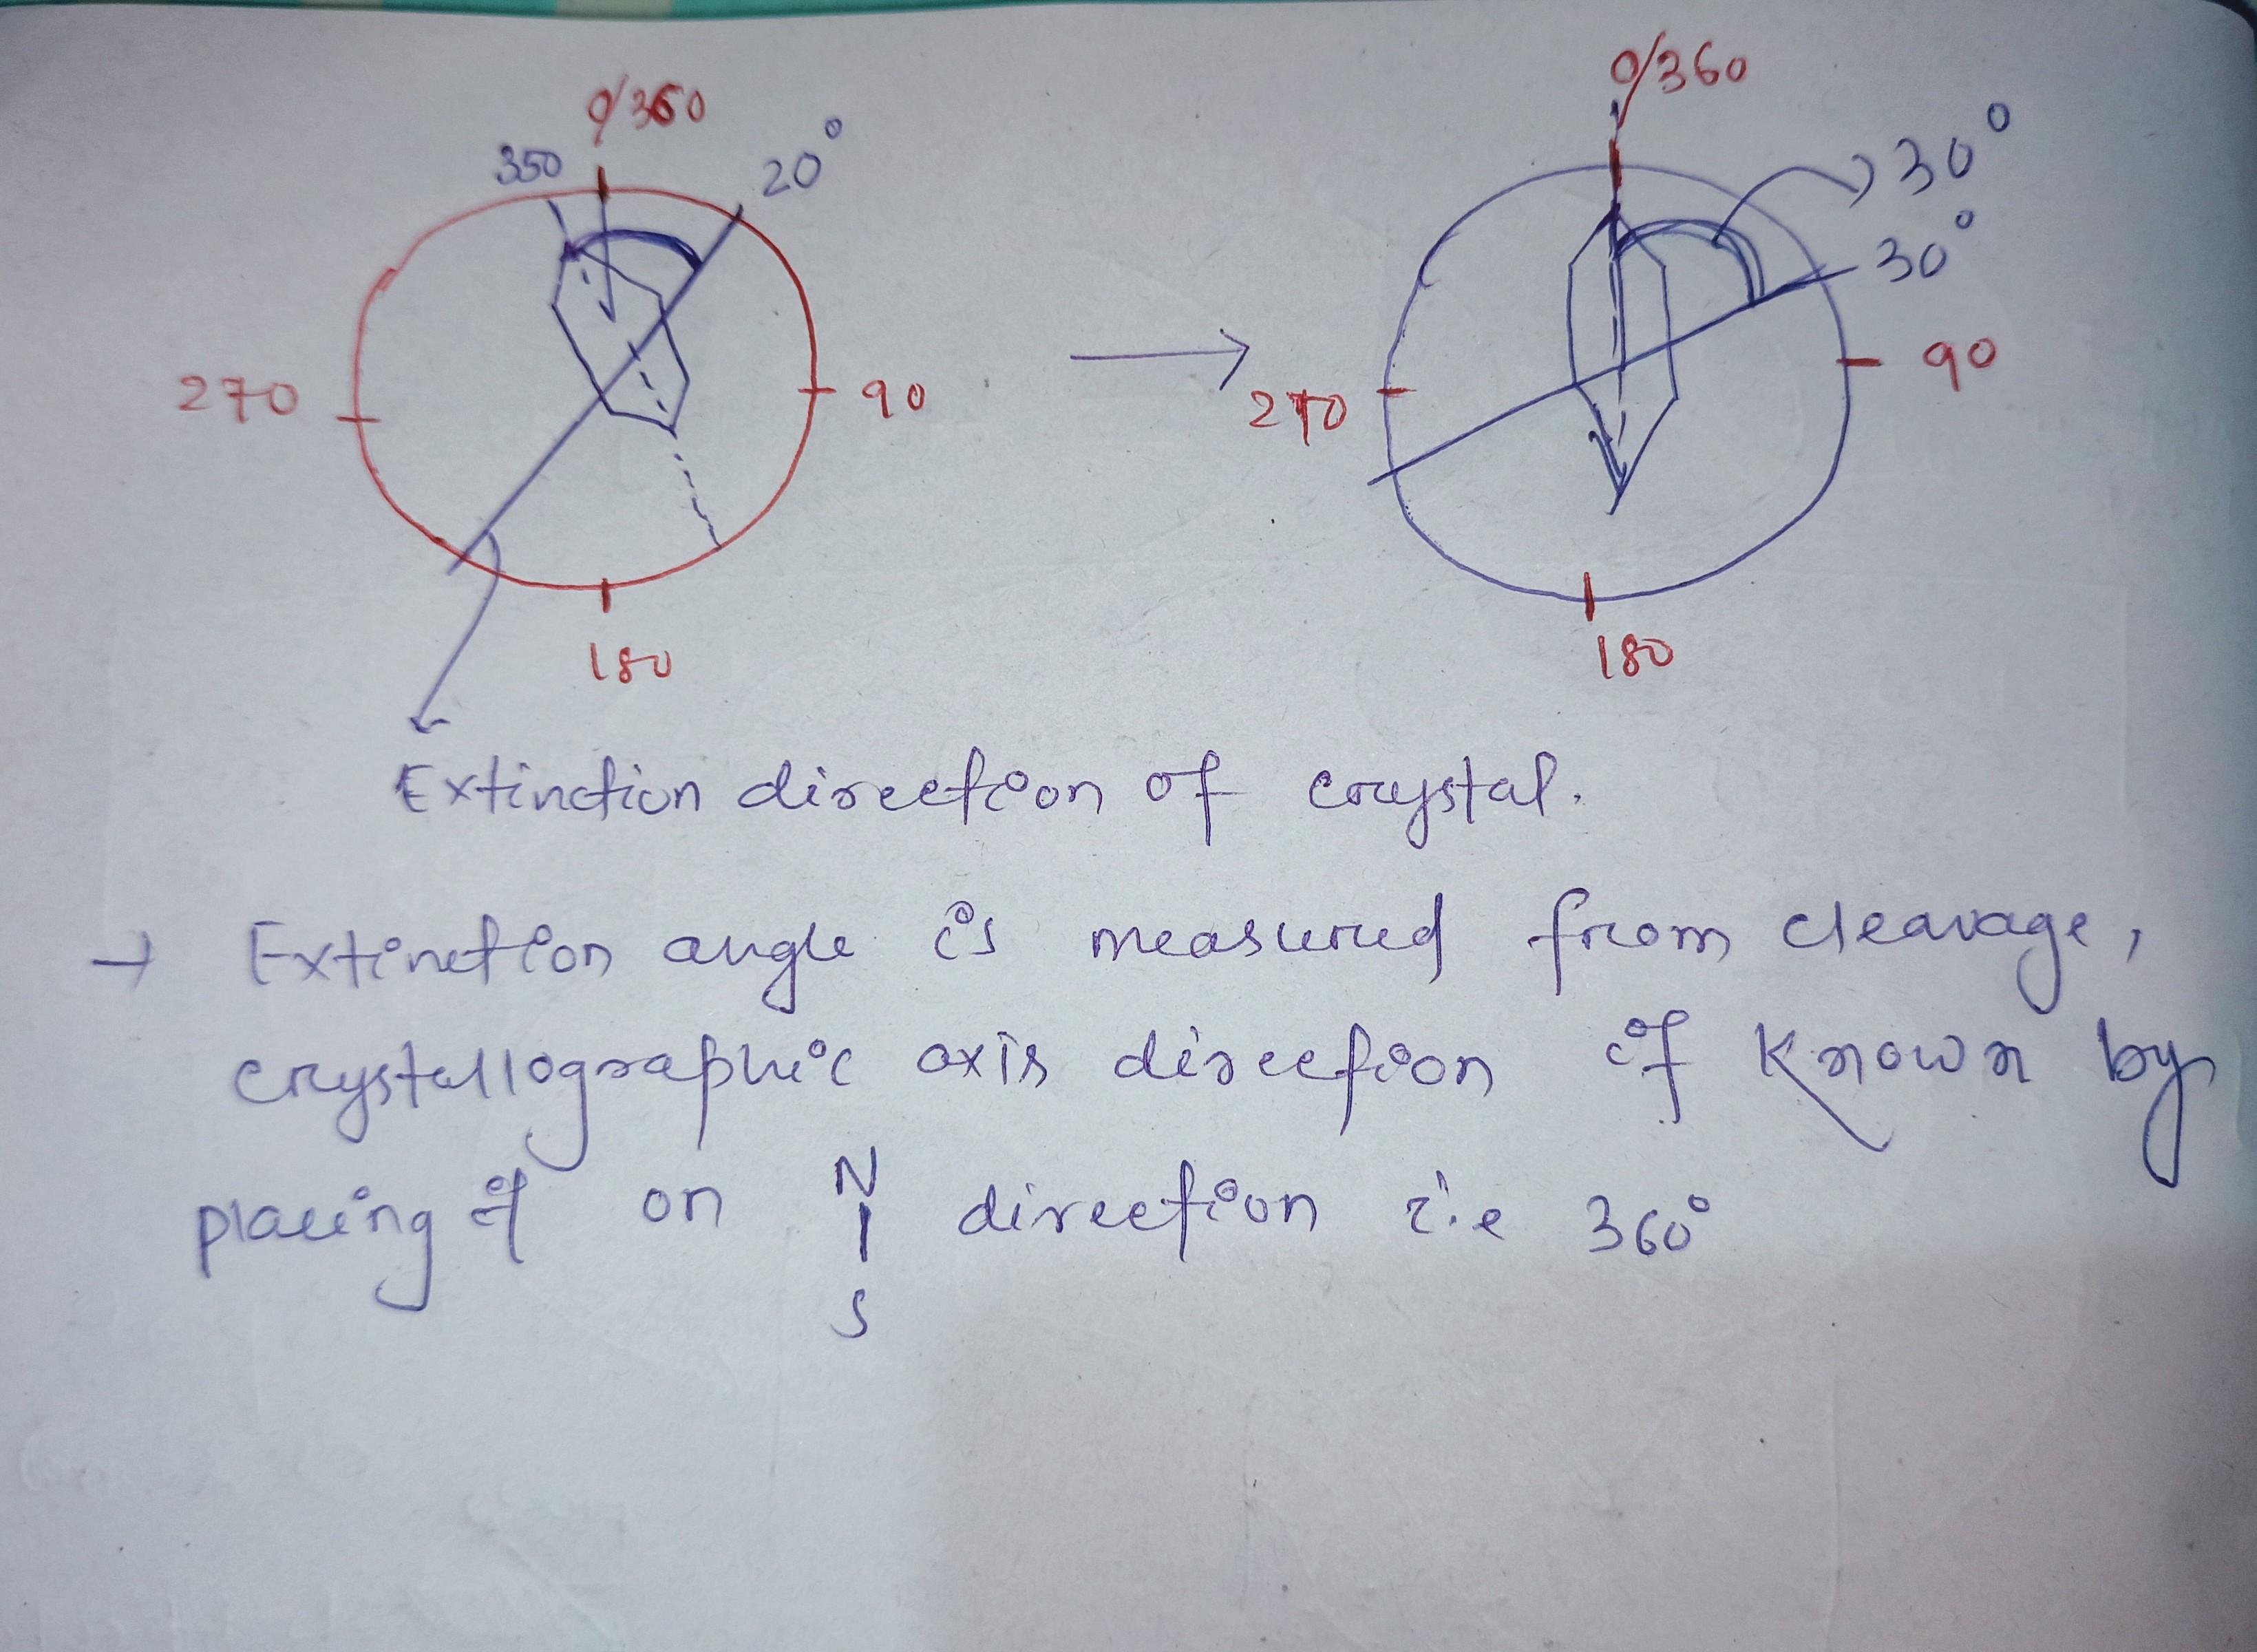 0/360
350
20°
270
90
180
0/360
30°
30°
270
90
180
Extinction direction of crystal.
→ Extinction angle is measured from cleavage,
crystallographic axis direction if known by
placing it on N direction i.e 360°
S